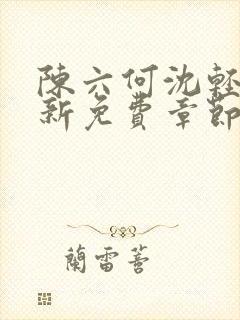 陳六何沈輕
新免費章節
蘭雷著